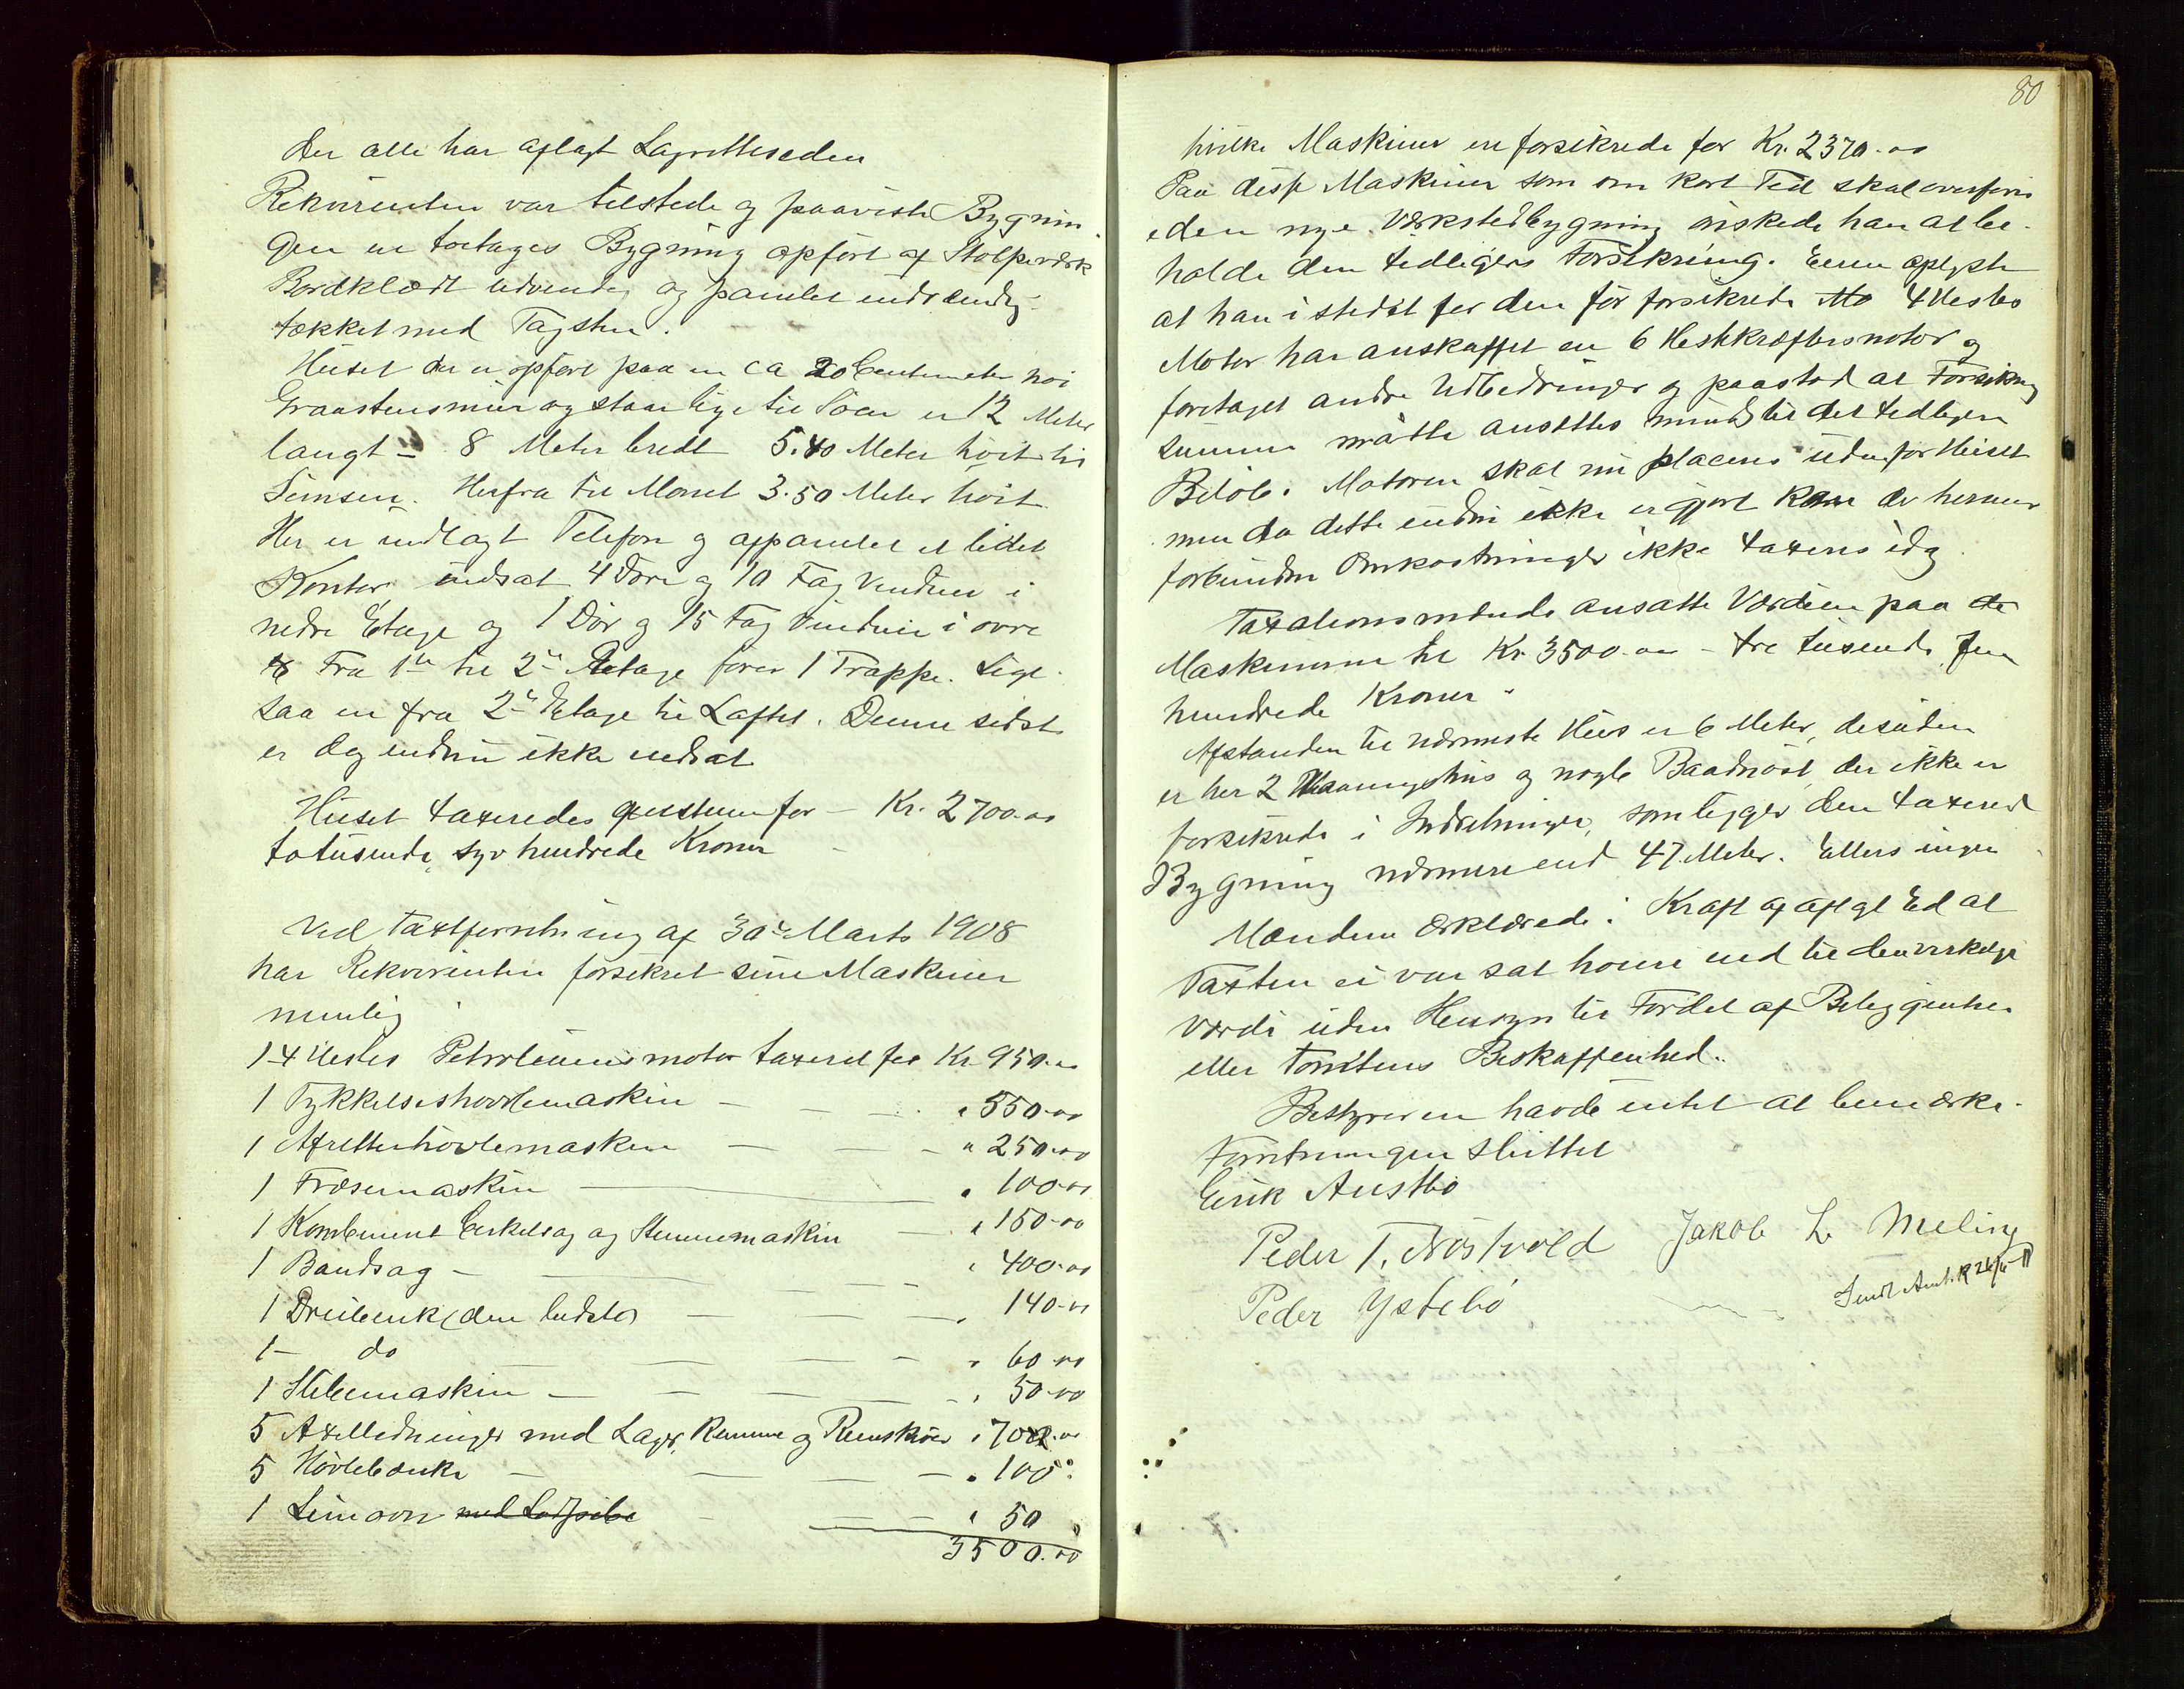 der alle har aflagt Lagretteseden
Rekvirenten var tilstede og paaviste Bygnin
gen er toetages Bygning opført af Stolpeværk
Bordklædt udvendig og panelet indvendig
tækket med Tagsten.
Huset der er opført paa en ca 20 Centimeter høi
Graastensmur og staar lige til Søen er 12 Meter
langt - 8 Meter bredt 5.40 Meter høit til
Simsen. Herfra til Mønet 3.50 Meter høit
Her er indlagt Telefon og afpanelet et lidet
Kontor, indsat 4 Døre og 10 Fag Vinduer i
nedre Etage og 1 Dør og 15 Fag Vinduer i øvre
Fra 1ste til 2den Etage fører 1 Trappe. Lige-
saa en fra 2den Etage til Loftet. Denne sidste
er dog endnu ikke indsat
Huset taxeredes for - Kr. 2700.00
totusende syv hundrede Kroner -
Ved taxtforretning af 30te Marts 1908
har Rekvirenten forsikret sine Maskiner
nemlig
1 4 Hestes Petroleumsmotor taxeret for Kr. 950.00
1 Tykkelseshøvlemaskin - - - " 550.00
1 Afretterhøvlemaskin - - - " 250.00
1 Fræsemaskin - " 100.00
1 Kombineret Cirkelsag og Stemmemaskin - " 150.00
1 Bandsag - - - " 400.00
1 Dreiebenk (den bedste) - - " 140.00
1 - do - - - " 60.00
1 Slibemaskin - - - - " 50.00
5 Axelledninger med Lager, Remme og Remskiver " 700.00
5 Høvlebænke - - - " 100:
1 Limovn med Lodpibe - - " 50
3500.00
80
hvilke Maskiner er forsikrede for Kr. 2370.00
Paa disse Maskiner som om kort Tid skal overføres
i den nye Værkstedbygning ønskede han at be-
holde den tidligere Forsikring. Eieren oplyste
at han istedet for den før forsikrede Mo 4 Hestes
Motor har anskaffet en 6 Hestekræftersmotor og
foretaget andre Udbedringer og paastod at Forsikrings
summen maatte ansættes mindst til det tidligere
Beløb. Motoren skal nu placeres udenfor Huset
men da dette endnu ikke er gjort kan de hermed
forbundne Omkostninger ikke taxeres idag.
Taxationsmændene ansatte Værdien paa de
Maskinerne til Kr. 3500.00 - tre tusende fem
hundrede Kroner -
Afstanden til nærmeste Hus er 6 Meter, desuden
er her 2 Vaaningshus og nogle Baadnøst, der ikke er
forsikrede i Indretningen, som ligger den taxerede
Bygning nærmere end 47 Meter. Ellers ingen
Mændene erklærede i Kraft af aflagt Ed at
Taxten ei var sat høiere end til den virkelige
værdi uden Hensyn til Fordel af Beliggenhed
eller Tomtens Beskaffenhed.
Bestyreren havde intet at bemærke.
Forretningen sluttet
Eirik Austbø
Peder T. Nøstvold Jakob L. Meling
Peder Ystebø
Sendt Amt. R 26/5 11